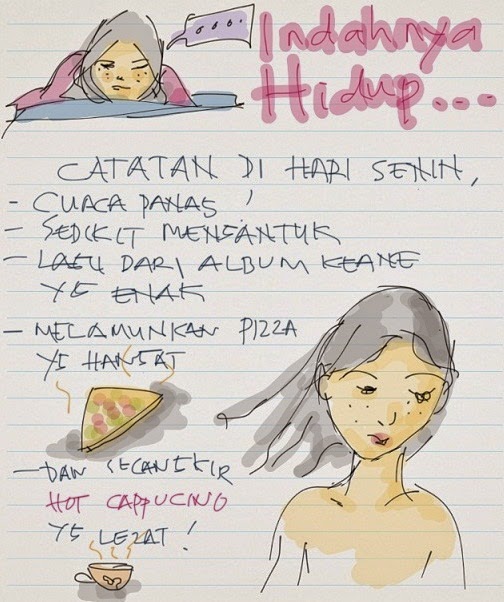 Indahnya
Hidup...
CATATAN DI HARI SENIN,
- CUACA PANAS!
- SEDIKIT MENGANTUK
- LAGU DARI ALBUM KEANE
YG ENAK
- MELAMUNKAN PIZZA
YG HANGAT
- DAN SECANGKIR
HOT CAPPUCINO
YG LEZAT!